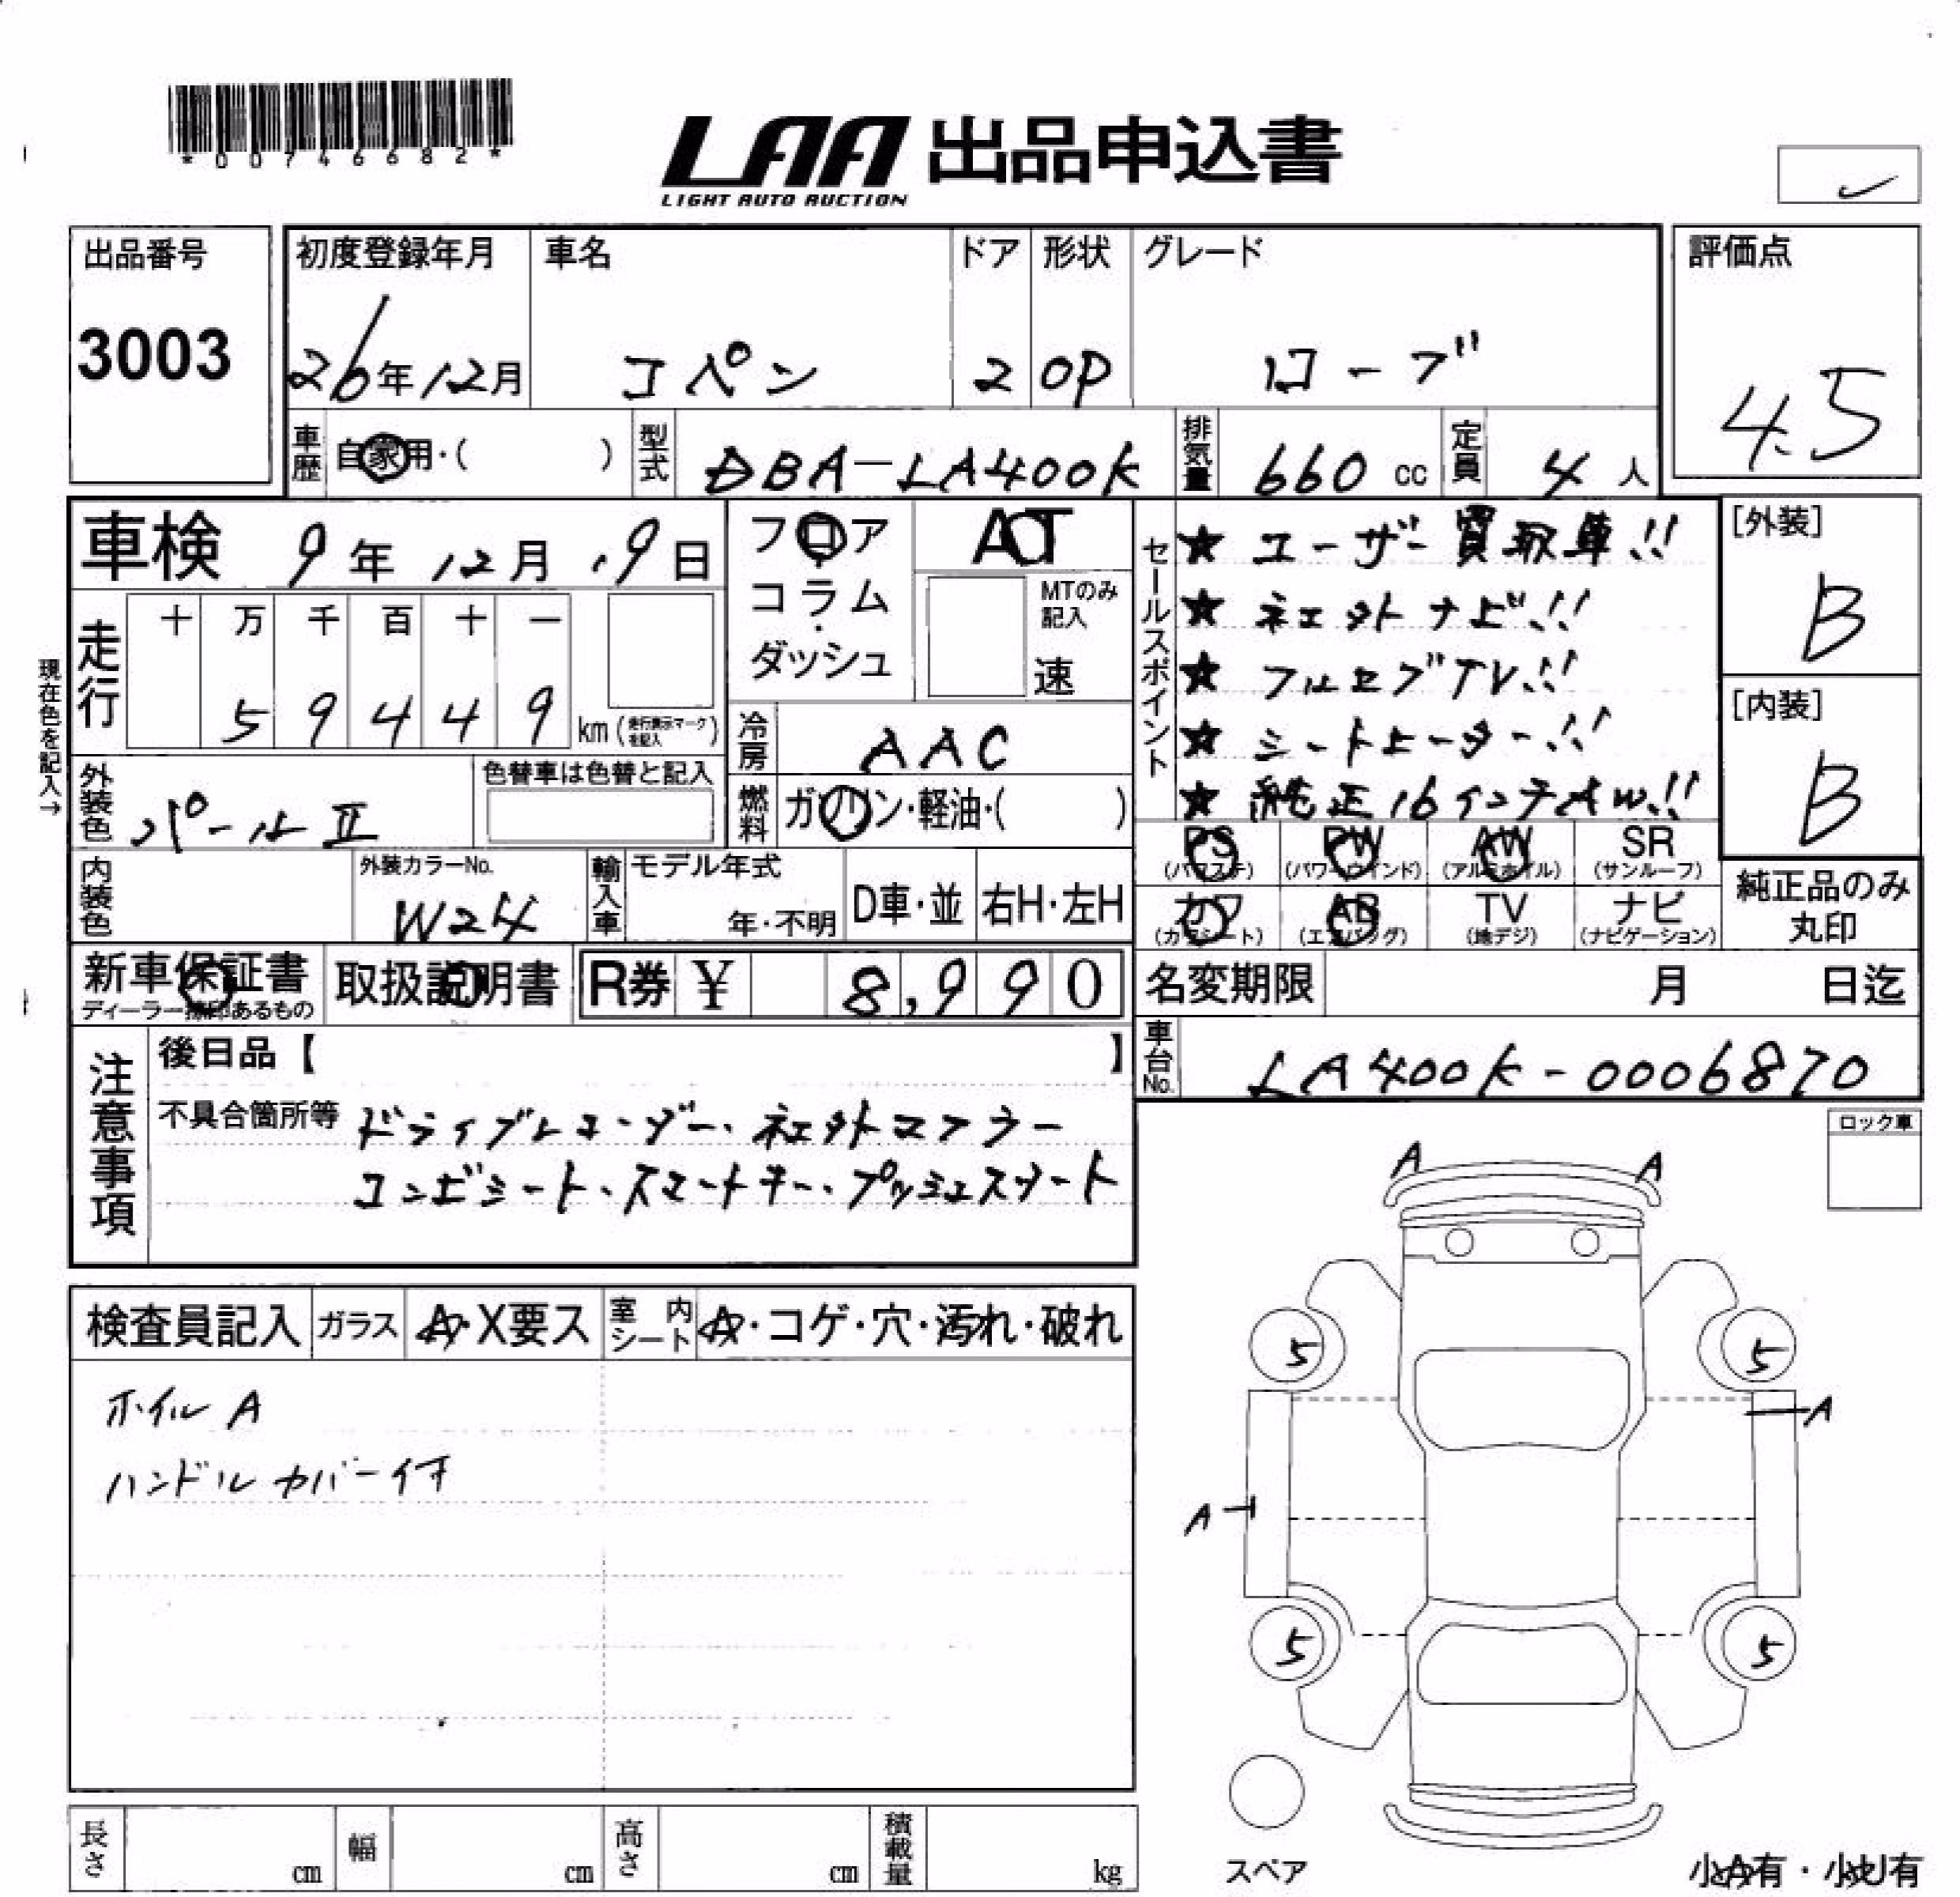 *0074668 2*
LAA 出品申込書
LIGHT AUTO AUCTION
出品番号
3003
初度登録年月
26年12月
車名
コペン
ドア
2
形状
OP
グレード
ローブ
評価点
4.5
車歴
自家用・( )
型式
DBA-LA400K
排気量
660 cc
定員
4 人
車検 9年12月19日
フロア
コラム
・
ダッシュ
AT
MTのみ
記入
速
セールスポイント
★ユーザー買取車!!
★社外ナビ!!
★フルセグTV!!
★シートヒーター!!
★純正16インチAW!!
[外装]
B
[内装]
B
現在色を記入→
走行
十 万 千 百 十 一
5 9 4 4 9
km(走行表示マークを記入)
冷房
AAC
外装色
パールⅡ
色替車は色替と記入
燃料
ガソリン・軽油・( )
PS
(パワステ)
PW
(パワーウインド)
AW
(アルミホイル)
SR
(サンルーフ)
カワ
(カワシート)
AB
(エアバッグ)
TV
(地デジ)
ナビ
(ナビゲーション)
純正品のみ
丸印
内装色
外装カラーNo.
W24
輸入車
モデル年式
年・不明
D車・並
右H・左H
新車保証書
ディーラー捺印あるもの
取扱説明書
R券 ¥ 8,990
名変期限 月 日迄
車台No.
LA400K-0006870
注意事項
後日品【 】
不具合箇所等 ドライブレコーダー・社外マフラー
コンビシート・スマートキー・プッシュスタート
ロック車
検査員記入
ガラス
A・X要ス
室内
シート
A・コゲ・穴・汚れ・破れ
ホイルA
ハンドルカバー付
A A
5 5
A
A
5 5
スペア
小A有・小U有
長さ cm
幅 cm
高さ cm
積載量 kg